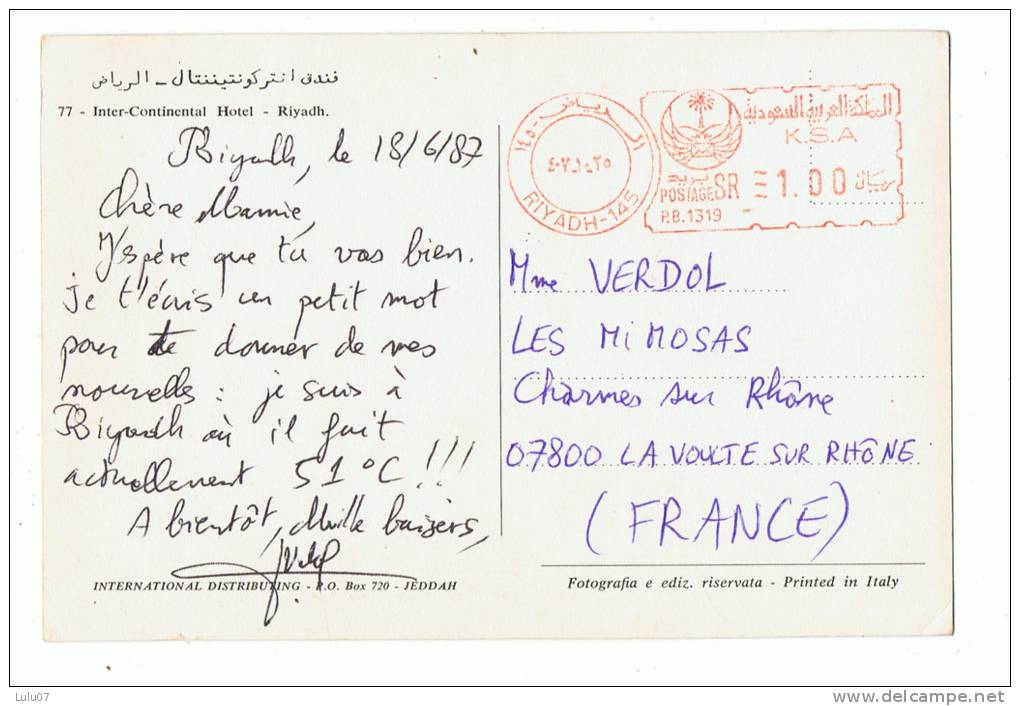 فندق انتركونتيننتال - الرياض
77 - Inter-Continental Hotel - Riyadh.
Riyadh, le 18/6/87
Chère Mamie,
J'espère que tu vas bien.
Je t'écris un petit mot
pour te donner de mes
nouvelles : je suis à
Riyadh où il fait
actuellement 51°C !!!
A bientôt, Mille baisers,
INTERNATIONAL DISTRIBUTING - P.O. Box 720 - JEDDAH
الرياض-١٤٥
RIYADH-145
المملكة العربية السعودية
K.S.A
بريد
POSTAGE SR 1.00 ريال
P.B.1319
Mme VERDOL
LES MiMOSAS
Charmes sur Rhône
07800 LA VOULTE SUR RHÔNE
(FRANCE)
Fotografia e ediz. riservata - Printed in Italy
Lulu07
delcampe.net